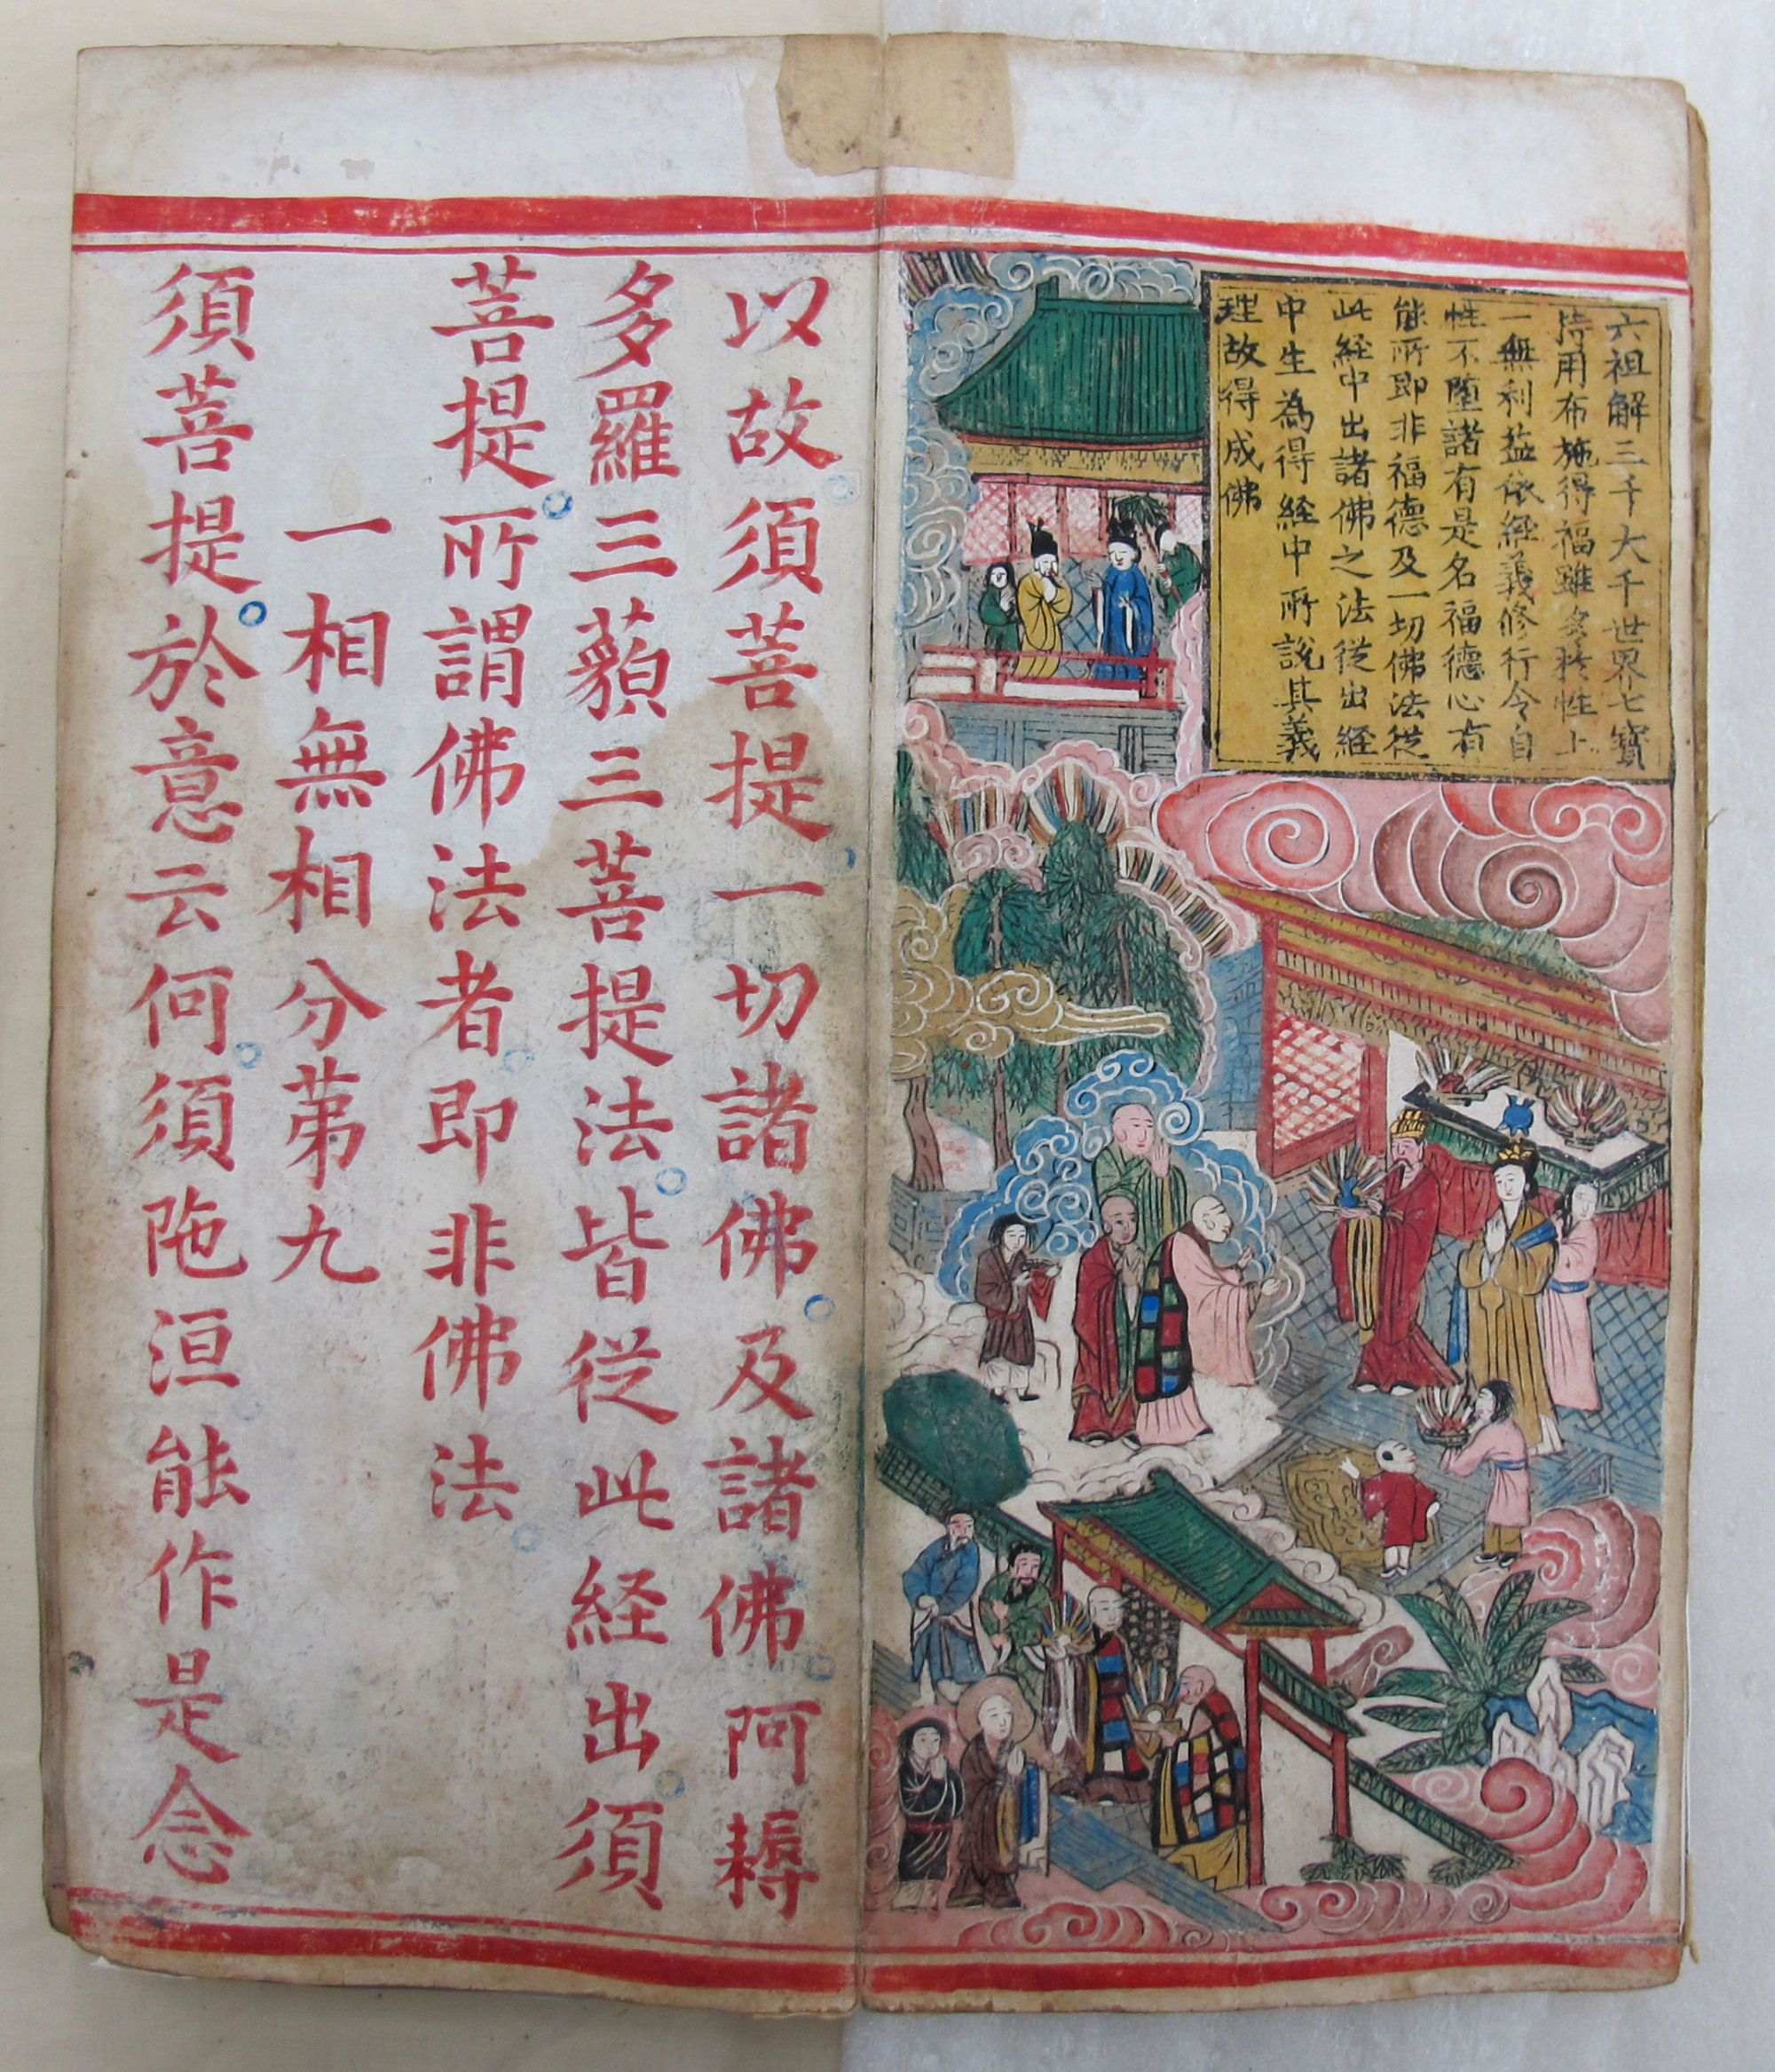 六祖解三千大千世界七寶
持用布施得福雖多於性上
一無利益依經義修行令自
性不墮諸有是名福德心有
能所即非福德及一切佛法從
此經中出諸佛之法從出經
中生為得經中所說其義
理故得成佛
以故須菩提一切諸佛及諸佛阿耨
多羅三藐三菩提法皆從此経出須
菩提所謂佛法者即非佛法
一相無相分苐九
須菩提於意云何須陁洹能作是念